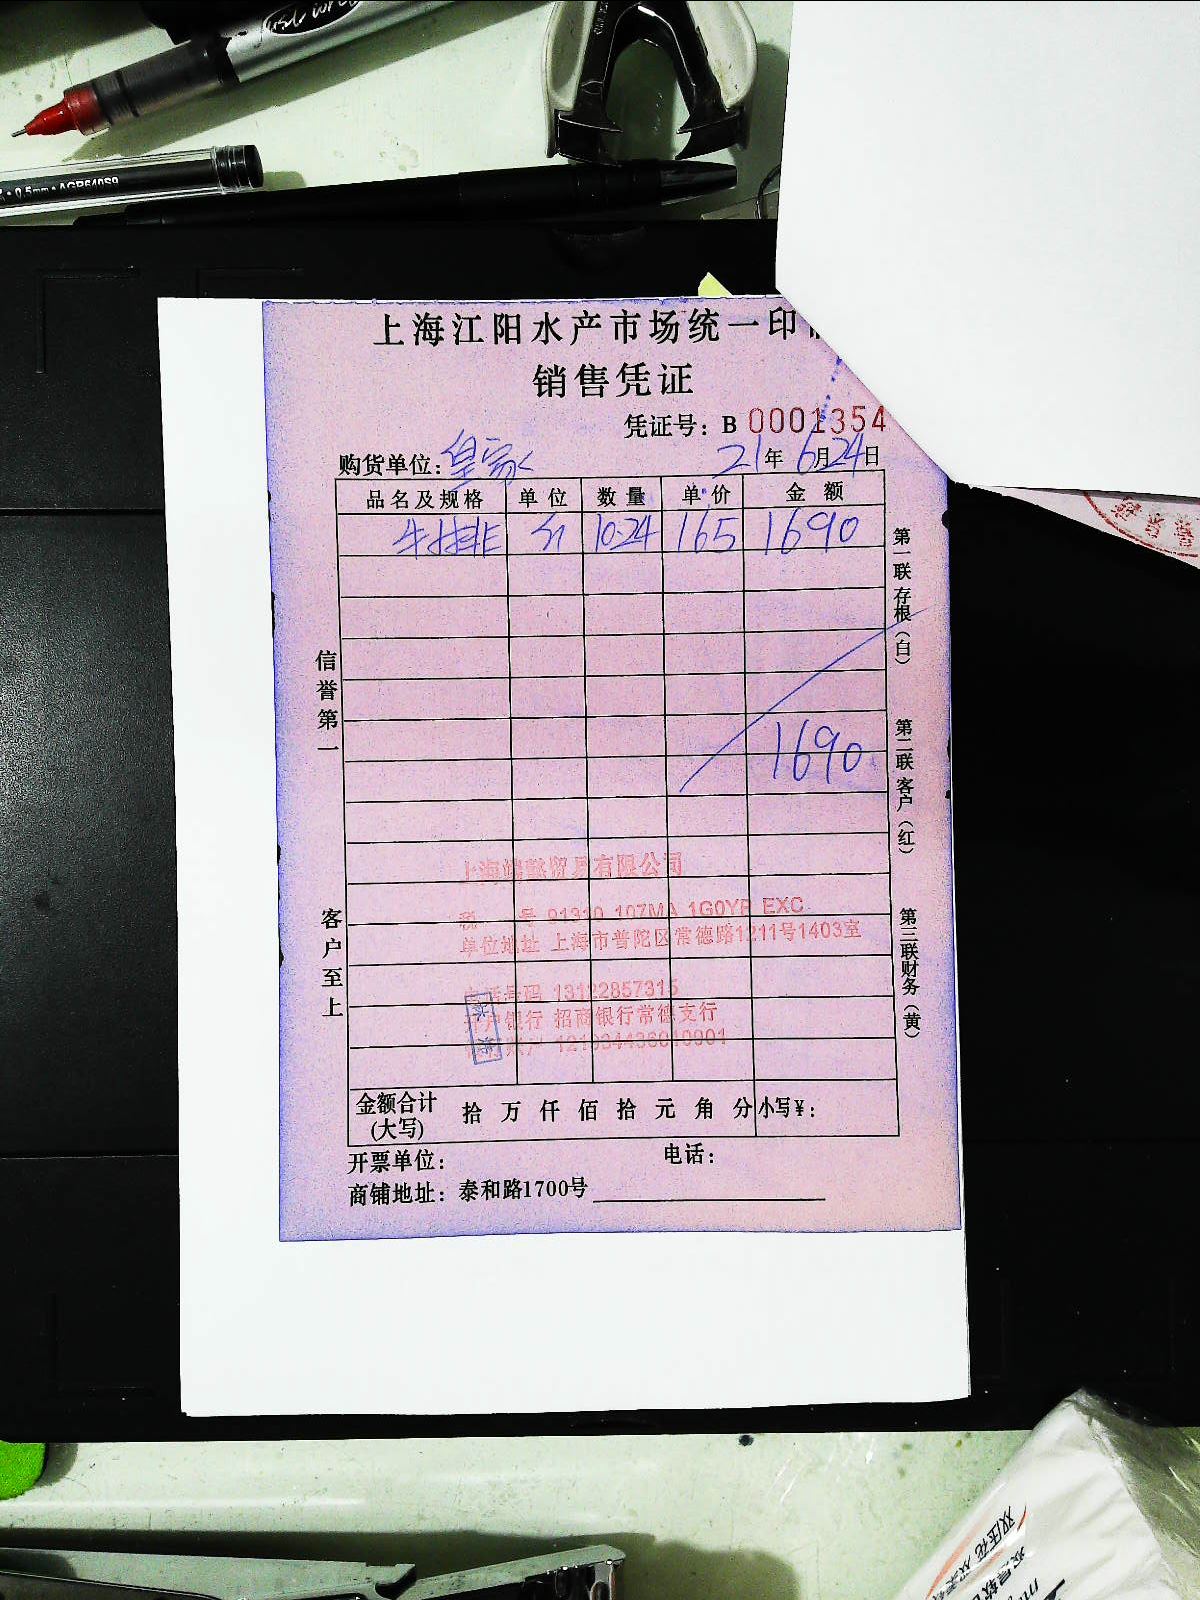 0.5mm·AGP640S9
上海江阳水产市场统一印
销售凭证
凭证号：B 0001354
购货单位：皇家
21年6月24日
品名及规格 单位 数量 单价 金额
牛排 斤 10.24 165 1690
1690
信誉第一
客户至上
第一联存根（白）
第二联客户（红）
第三联财务（黄）
上海 贸易有限公司
税 号 91310 107MA 1G0YP EXC
单位地址 上海市普陀区常德路1211号1403室
电话号码 13122857315
开户银行 招商银行常德支行
账户
金额合计(大写) 拾 万 仟 佰 拾 元 角 分 小写¥：
开票单位： 电话：
商铺地址：泰和路1700号
双压花